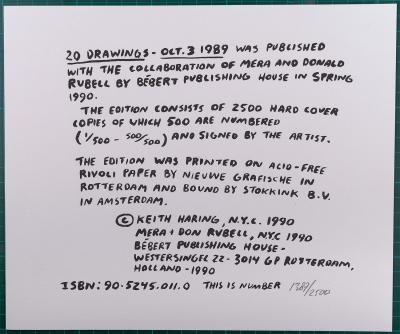 20 DRAWINGS - OCT. 3 1989 WAS PUBLISHED
WITH THE COLLABORATION OF MERA AND DONALD
RUBELL BY BÉBERT PUBLISHING HOUSE IN SPRING
1990.
THE EDITION CONSISTS OF 2500 HARD COVER
COPIES OF WHICH 500 ARE NUMBERED
(1/500 - 500/500) AND SIGNED BY THE ARTIST.
THE EDITION WAS PRINTED ON ACID-FREE
RIVOLI PAPER BY NIEUWE GRAFISCHE IN
ROTTERDAM AND BOUND BY STOKKINK B.V.
IN AMSTERDAM.
© KEITH HARING, N.Y.C. 1990
MERA + DON RUBELL, NYC 1990
BÉBERT PUBLISHING HOUSE -
WESTERSINGEL 22 - 3014 GP ROTTERDAM,
HOLLAND - 1990
ISBN: 90.5245.011.0 THIS IS NUMBER 1789/2500